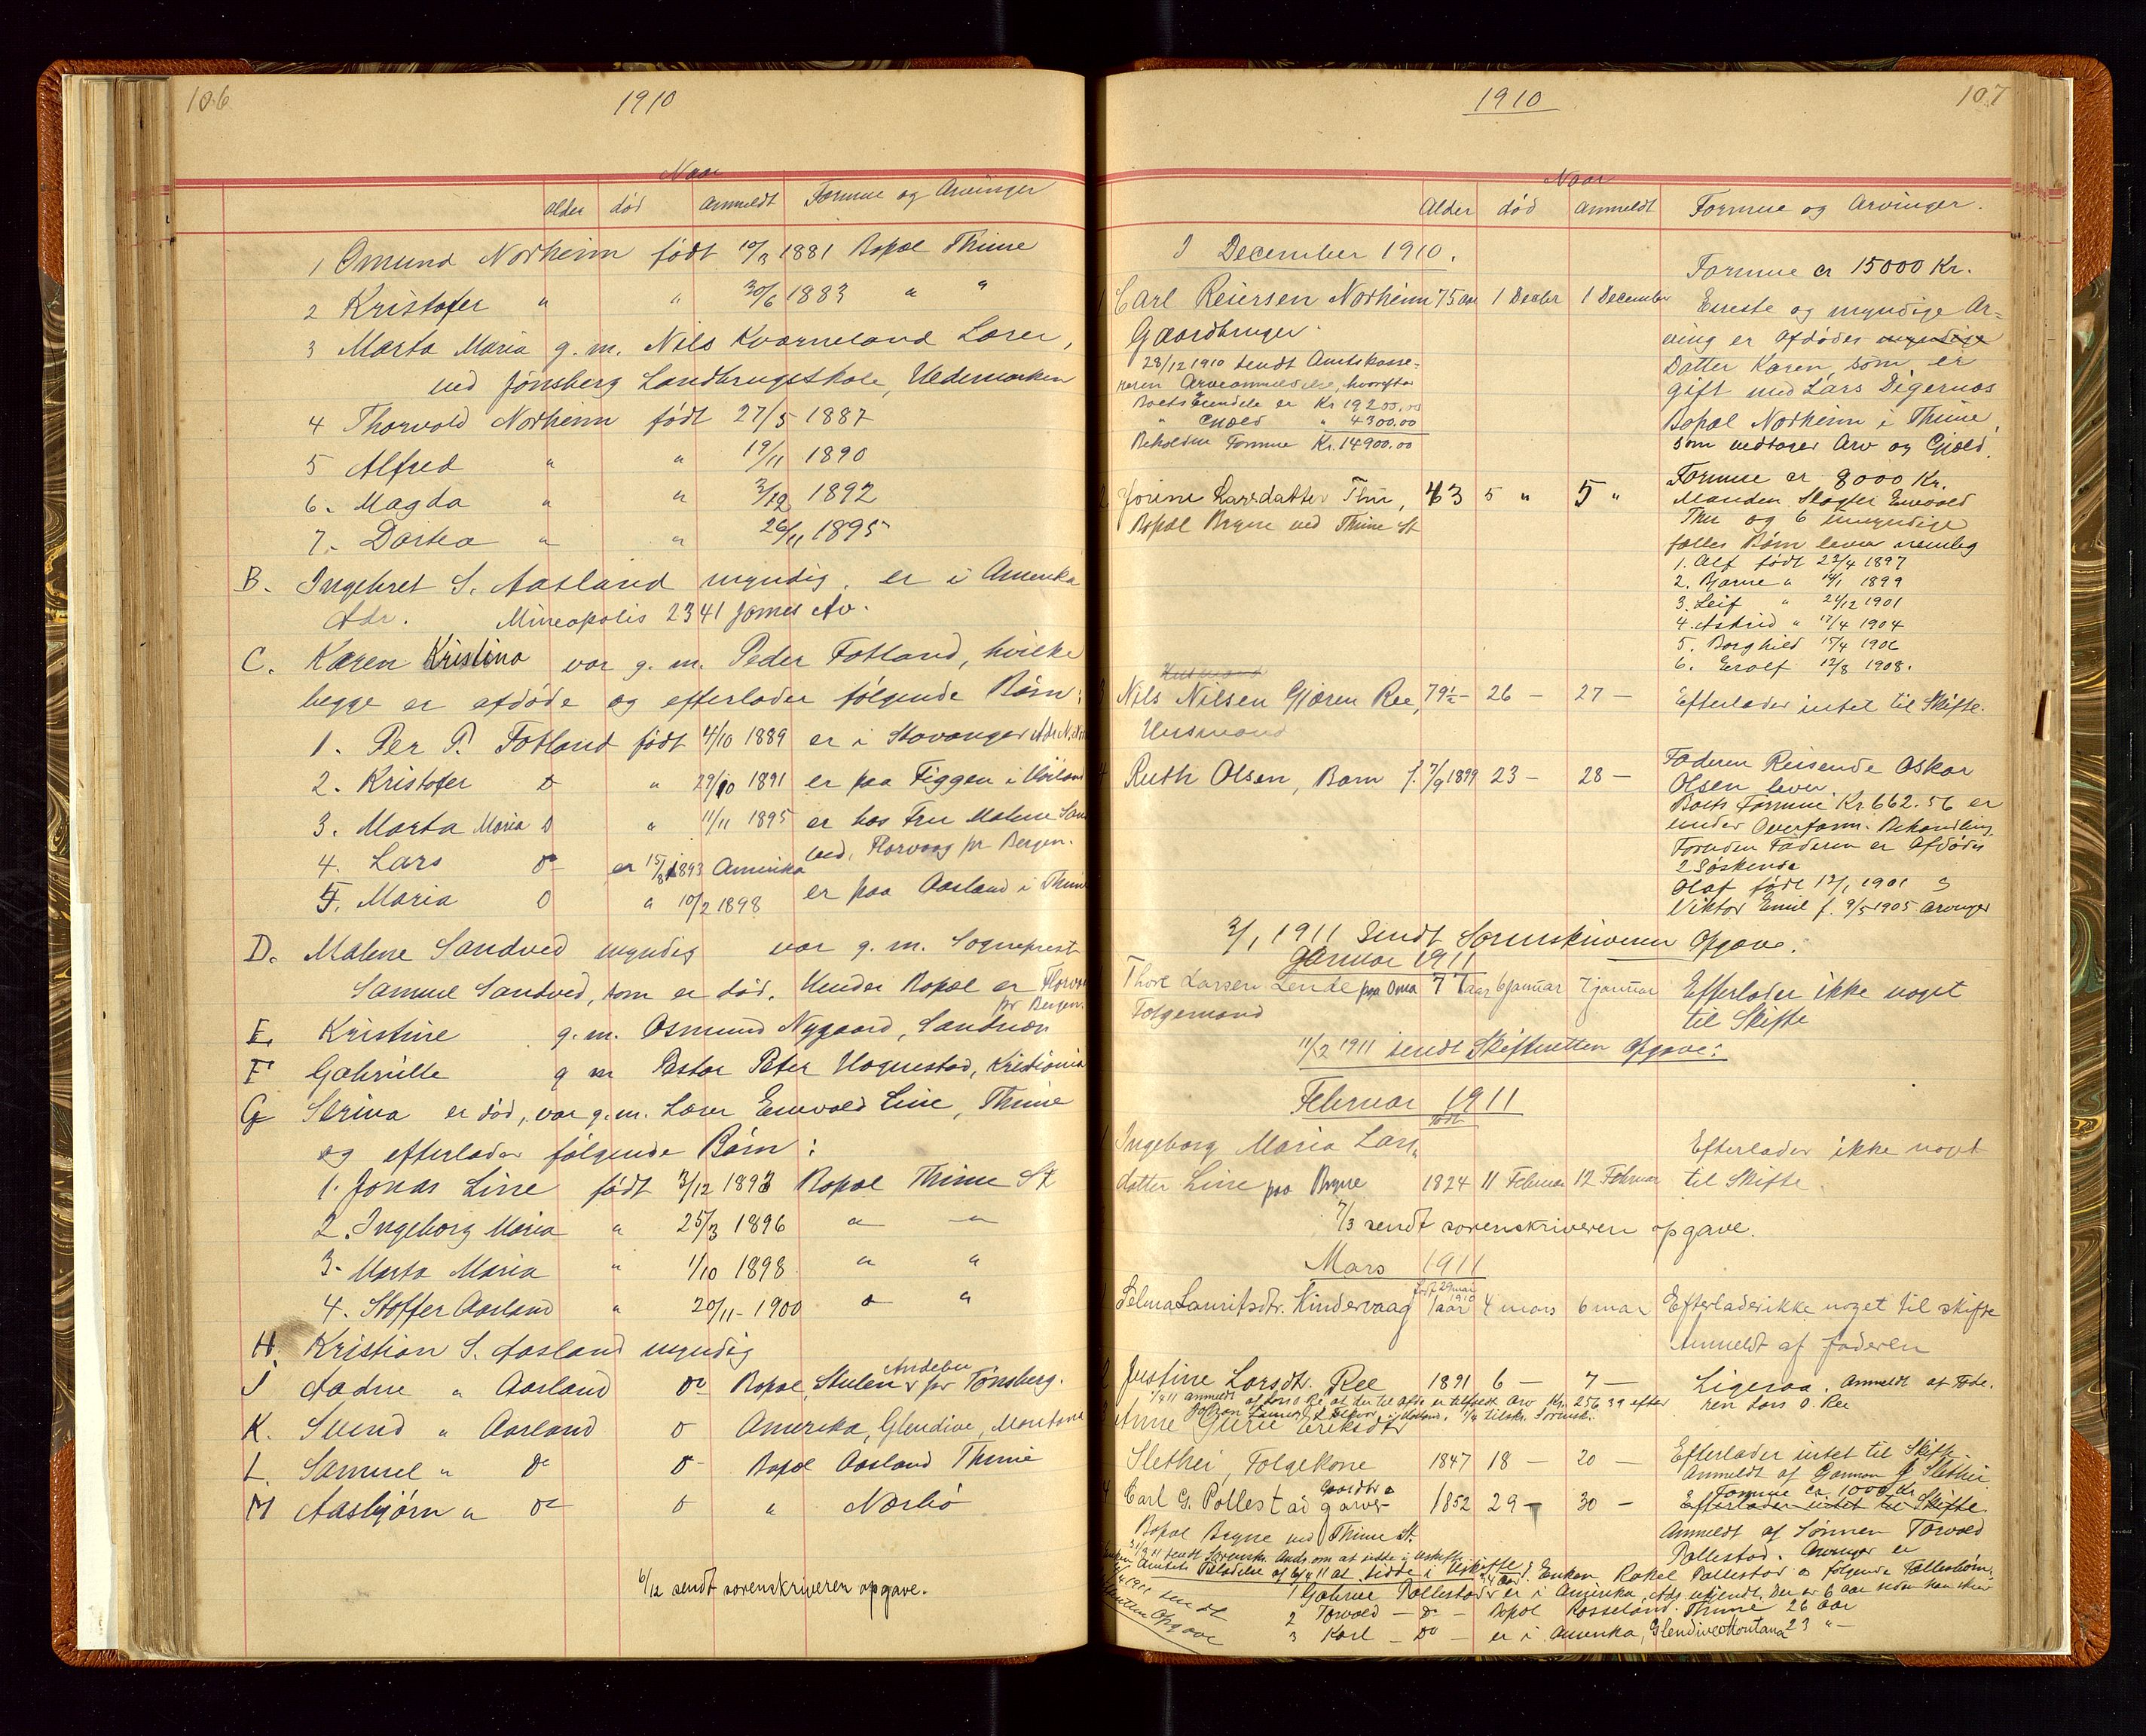 106
1910
Naar
Alder død Anmeldt Formue og Arvinger
1 Omund Norheim født 10/3 1881 Bopæl Thime
2 Kristofer " " 30/6 1883 " "
3 Marta Maria g. m. Nils Kvarneland Lærer,
ved Jønsberg Landbrugsskole, Hedemarken
4 Thorvald Norheim født 27/5 1887
5 Alfred " " 19/11 1890
6. Magda " " 3/12 1892
7. Dortea " " 26/11 1895
B. Ingebret S. Aasland myndig. er i Amerika
Adr. Mineapolis 2341 James Av.
C. Karen Kristina var g. m. Peder Fotland, hvilke
begge er afdøde og efterlader følgende Børn:
1. Per P. Fotland født 4/10 1889 er i Stavanger
2. Kristofer Do " 29/10 1891 er paa Figgen i
3. Marta Maria Do " 11/11 1895 er hos Fru Malene
4. Lars Do er 15/8 1893 Amerika ved, Florvaag pr Bergen.
5. Maria Do " 10/2 1898 er paa Aasland i Thime
D. Malene Sandved myndig var g. m. Sogneprest
Samuel Sandved, som er død. Hendes Bopæl er
pr Bergen.
E. Kristine g. m. Osmund Nygaard, Sandnæs
F Gabrielle g m Pastor Peter Hognestad, Kristiania
G Serina er død, var g. m. Lærer Enevald Line, Thime
og efterlader følgende Børn:
1. Jonas Line født 3/12 1893 Bopæl Thime St
2. Ingeborg Maria " 25/3 1896 " "
3. Marta Maria " 1/10 1898 " "
4. Stoffer Aasland " 20/11 - 1900 " "
H. Kristian S. Aasland myndig
Andebu
J Aadne " Aasland Do Bopæl, pr Tønsberg.
K. Svend " Aasland Do Amerika, Glendive, Montana
L. Samuel " Do Do Bopæl Aasland Thime
M Aasbjørn " Do Do " Nærbø
6/12 sendt sorenskriveren opgave.
107
1910
Naar
Alder død Anmeldt Formue og Arvinger.
I December 1910.
Formue er 15000 Kr.
1 Carl Reiersen Norheim 75 aar 1 Decbr 1 December Eneste og myndige Ar=
Gaardbruger. ving er afdødes myndige
28/12 1910 sendt Amtskasse= Datter Karen, som er
reren Arveanmeldelse, hvorefter gift med Lars Digernæs
Boets Eiendele er Kr 19200.00 Bopæl Norheim i Thime,
" Gjæld " 4300.00 som vedtager Arv og Gjæld.
Beholden Formue Kr. 14900.00
Formue er 8000 Kr.
2 Jorine Larsdatter Thu, 43 5 " 5 " Manden Slagter Enevald
Bopæl Bryne ved Thime St Thu og 6 umyndige
fælles Børn lever nemlig
1. Alf født 22/4 1897
2. Bjarne " 14/1 1899
3. Leif " 24/12 1901
4. Astrid " 17/4 1904
5. Borghild 15/4 1906
6. Erolf 12/8 1908.
Husmand
3 Nils Nilsen Gjæren Ree, 79½ - 26 - 27 - Efterlader intet til Skifte.
Husmand
4 Ruth Olsen, Barn f. 7/9 1899 23 - 28 - Faderen Reisende Oskar
Olsen lever.
Boets Formue Kr. 662.56 er
under Overform. Behandling
Foruden Faderen er Afdødes
2 Søskende
Olaf født 12/1 1901 &
Viktor Emil f. 9/5 1905 Arvinger
3/1 1911 sendt Sorenskriveren Opgave.
Januar 1911
Thore Larsen Lende paa Oma 77 aar 6 januar 7 januar Efterlader ikke noget
Folgemand til Skifte
11/2 1911 sendt Skifteretten Opgave.
Februar 1911
født
1 Ingeborg Maria Lars= Efterlader ikke noget
datter Line paa Bryne 1824 11 Februar 12 Februar til Skifte.
7/3 sendt sorenskriveren opgave.
Mars 1911
1 Selma Lauritsdtr. Kindervaag 1 aar 4 mars 6 mar Efterlader ikke noget til skifte
Anmeldt af faderen
2 Justine Larsdtr. Ree 1891 6 - 7 - Ligesaa. Anmeldt af Fade.
ren Lars O. Ree
1/4 11 anmeldt af Lars O Re, at der til afdø er tilfaldt Arv Kr. 256 39 efter
3 Anne Gurie Eriksdtr
Slethei, Folgekone 1847 18 - 20 - Efterlader intet til Skifte.
Anmeldt af Slethei
4 Carl G. Pollestad Gaardbr 1852 29 - 30 - Formue er. 1000 Kr
Efterlader intet til Skifte.
Bopæl Bryne ved Thime St. Anmeldt af Sønnen Torvald
Pollestad. Arvinger er
Enken Rakel Pollestad & følgende Fællesbørn:
1 Gabriel Pollestad er i Amerika, Adr ukjendt. Der er 6 aar siden han skrev
2 Torvald - Do - Bopæl Rosseland. Thime 26 aar
3 Karl - Do - er i Amerika, Glendive Montana 23 " -